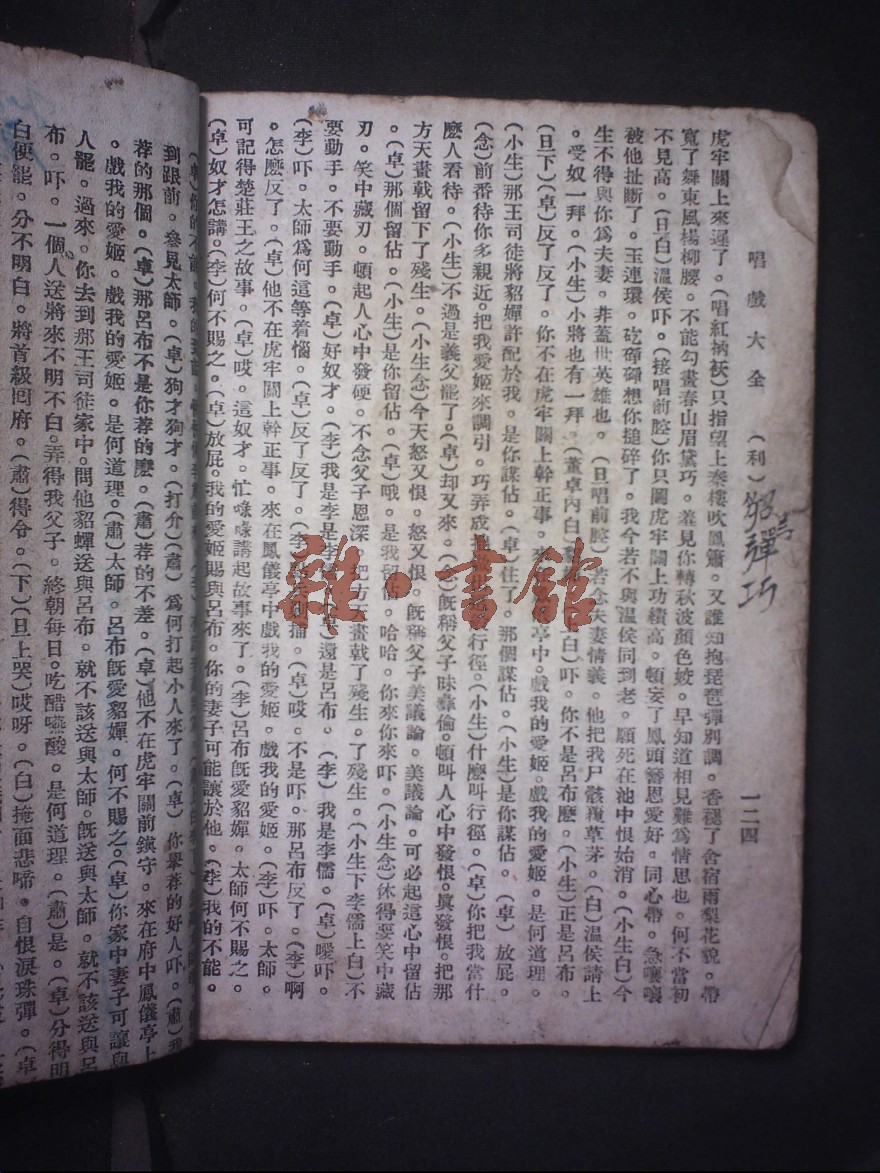 唱戲大全 （利） 一二四
貂彈巧
虎牢關上來遲了。（唱紅衲袄）只指望上秦樓吹鳳簫。又誰知抱琵琶彈別調。香褪了含宿雨梨花貌。帶
寬了舞東風楊柳腰。不能勾畫春山眉黛巧。羞見你轉秋波顏色姣。早知道相見難為情思也。何不當初
不見高。（旦白）溫侯吓。（接唱前腔）你只圖虎牢關上功績高。頓妄了鳳頭簪恩愛好。同心帶。急嚷嚷
被他扯斷了。玉連環。矻磾磾想你搥碎了。我今若不與溫侯同到老。願死在池中恨始消。（小生白）今
生不得與你爲夫妻。非蓋世英雄也。（旦唱前腔）若念夫妻情義。他把我尸骸覆草茅。（白）溫侯請上
。受奴一拜。（小生）小將也有一拜。（董卓內白）白）吓。你不是呂布麽。（小生）正是呂布。
（旦下）（卓）反了反了。你不在虎牢關上幹正事。來亭中。戲我的愛姬。戲我的愛姬。是何道理。
（小生）那王司徒將貂嬋許配於我。是你謀佔。（卓）住了。那個謀佔。（小生）是你謀佔。（卓）放屁。
（念）前番待你多親近。把我愛姬來調引。巧弄成行徑。（小生）什麼叫行徑。（卓）你把我當什
麽人看待。（小生）不過是義父罷了。（卓）却又來。（念）既稱父子昧彝倫。頓叫人心中發恨。眞發恨。把那
方天畫戟留下了殘生。（小生念）今天怒又恨。怒又恨。既稱父子美議論。美議論。可必起這心中留佔
。（卓）那個留佔。（小生）是你留佔。（卓）哦。是我留佔。哈哈。你來你來吓。（小生念）休得要笑中藏
刃。笑中藏刃。頓起人心中發硬。不念父子恩深。把方天畫戟了殘生。了殘生。（小生下李儒上白）不
要動手。不要動手。（卓）好奴才。（李）我是李是李儒。（卓）還是呂布。（李）我是李儒。（卓）噯吓。
（李）吓。太師爲何這等着惱。（卓）反了反了。（李）（卓）哎。不是吓。那呂布反了。（李）啊
。怎麽反了。（卓）他不在虎牢關上幹正事。來在鳳儀亭中戲我的愛姬。戲我的愛姬。（李）吓。太師。
可記得楚莊王之故事。（卓）哎。這奴才。忙喙喙講起故事來了。（李）呂布既愛貂嬋。太師何不賜之。
（卓）奴才怎講。（李）何不賜之。（卓）放屁。我的愛姬賜與呂布。你的妻子可能讓於他。（李）我的不能。
（卓）你的不能。我的
到跟前。叅見太師。（卓）狗才狗才。（打介）（肅）爲何打起小人來了。（卓）你舉荐的好人吓。（肅）我
荐的那個。（卓）那呂布不是你荐的麽。（肅）荐的不差。（卓）他不在虎牢關前鎭守。來在府中鳳儀亭上
。戲我的愛姬。戲我的愛姬。是何道理。（肅）太師。呂布既愛貂嬋。何不賜之。（卓）你家中妻子可讓與
人罷。過來。你去到那王司徒家中。問他貂蟬送與呂布。就不該送與太師。既送與太師。就不該送與呂
布。吓。一個人送將來不明不白。弄得我父子。終朝每日。吃醋嚥酸。是何道理。（肅）是。（卓）分得明
白便罷。分不明白。將首級回府。（肅）得令。（下）（旦上哭）哎呀。（白）掩面悲啼。自恨淚珠彈。（卓
雜·書館